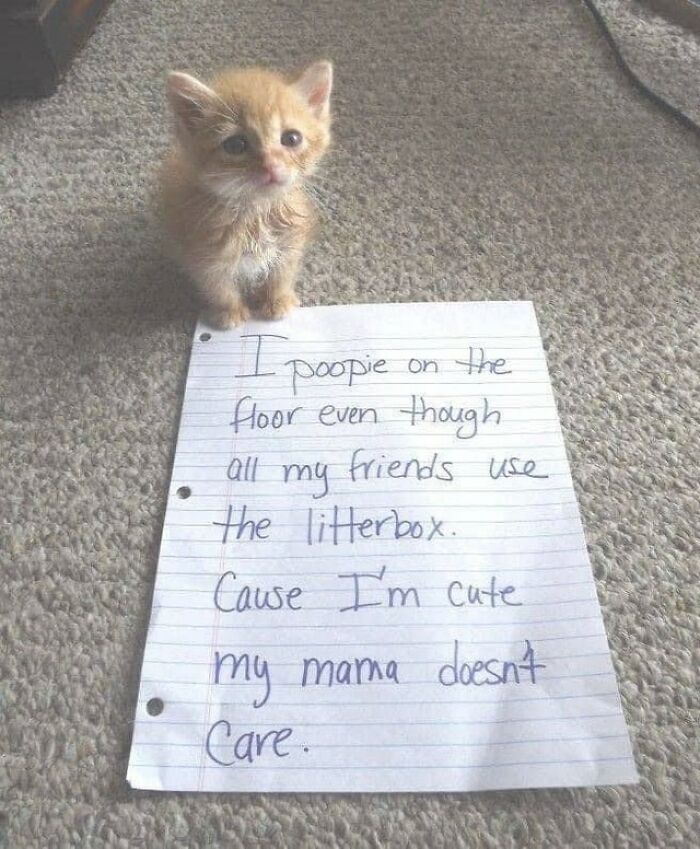 I poopie on the
floor even though
all my friends use
the litterbox.
Cause I'm cute
my mama doesn't
Care.